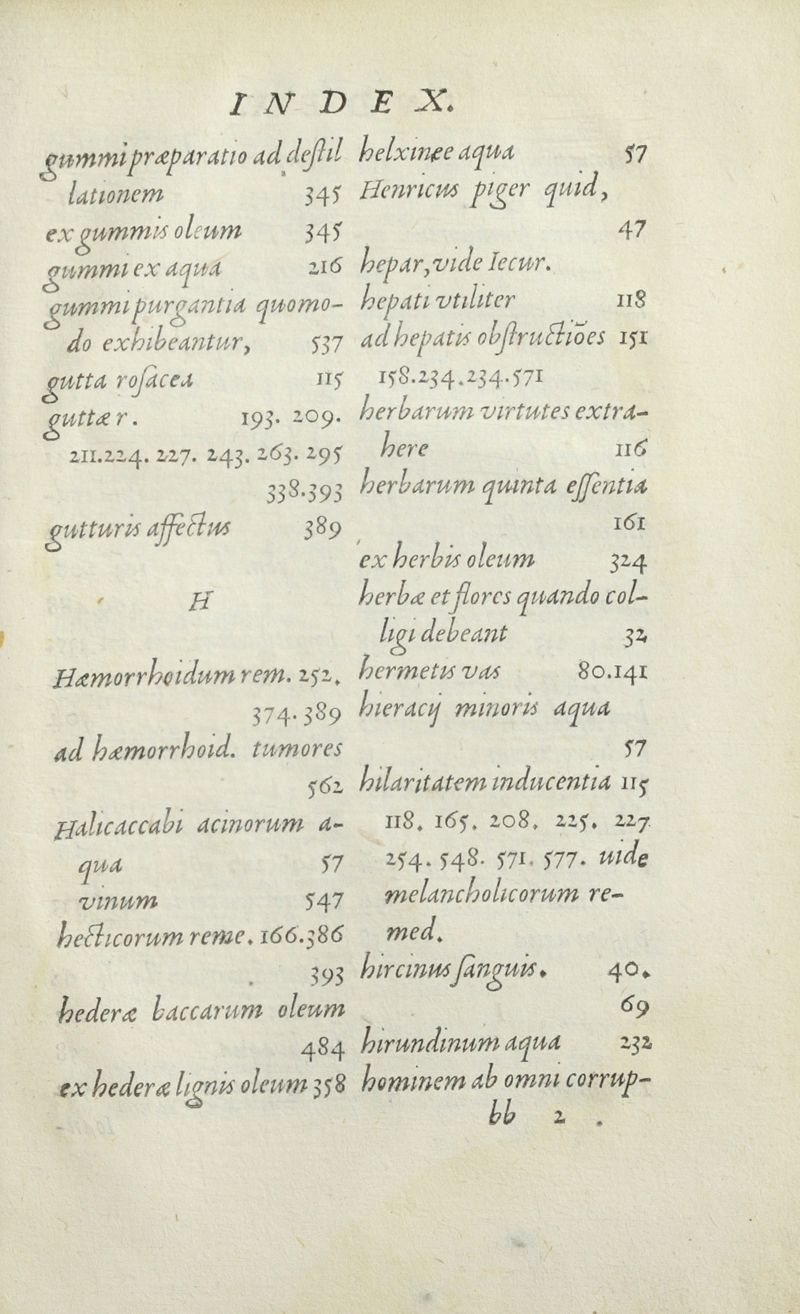 INDEX.
gummi præparatio ad destil
lationem 345
ex gummis oleum 345
gummi ex aqua 216
gummi purgantia quomo-
do exhibeantur, 537
gutta rosacea 115
guttæ r. 193. 209.
211.224. 227. 243. 263. 295
338.393
gutturis affectus 389
H
Hæmorrhoidum rem. 252.
374.389
ad hæmorrhoid. tumores
562
Halicaccabi acinorum a-
qua 57
vinum 547
hecticorum reme. 166.386
393
hederæ baccarum oleum
484
ex hederæ lignis oleum 358
helxineæ aqua 57
Henricus piger quid,
47
hepar, vide Iecur.
hepati vtiliter 118
ad hepatis obstructiões 151
158.234.234.571
herbarum virtutes extra-
here 116
herbarum quinta essentia
161
ex herbis oleum 324
herbæ et flores quando col-
ligi debeant 32
hermetis vas 80.141
hieracij minoris aqua
57
hilaritatem inducentia 115
118. 165. 208. 225. 227
254. 548. 571. 577. uide
melancholicorum re-
med.
hircinus sanguis. 40.
69
hirundinum aqua 232
hominem ab omni corrup-
bb 2 .